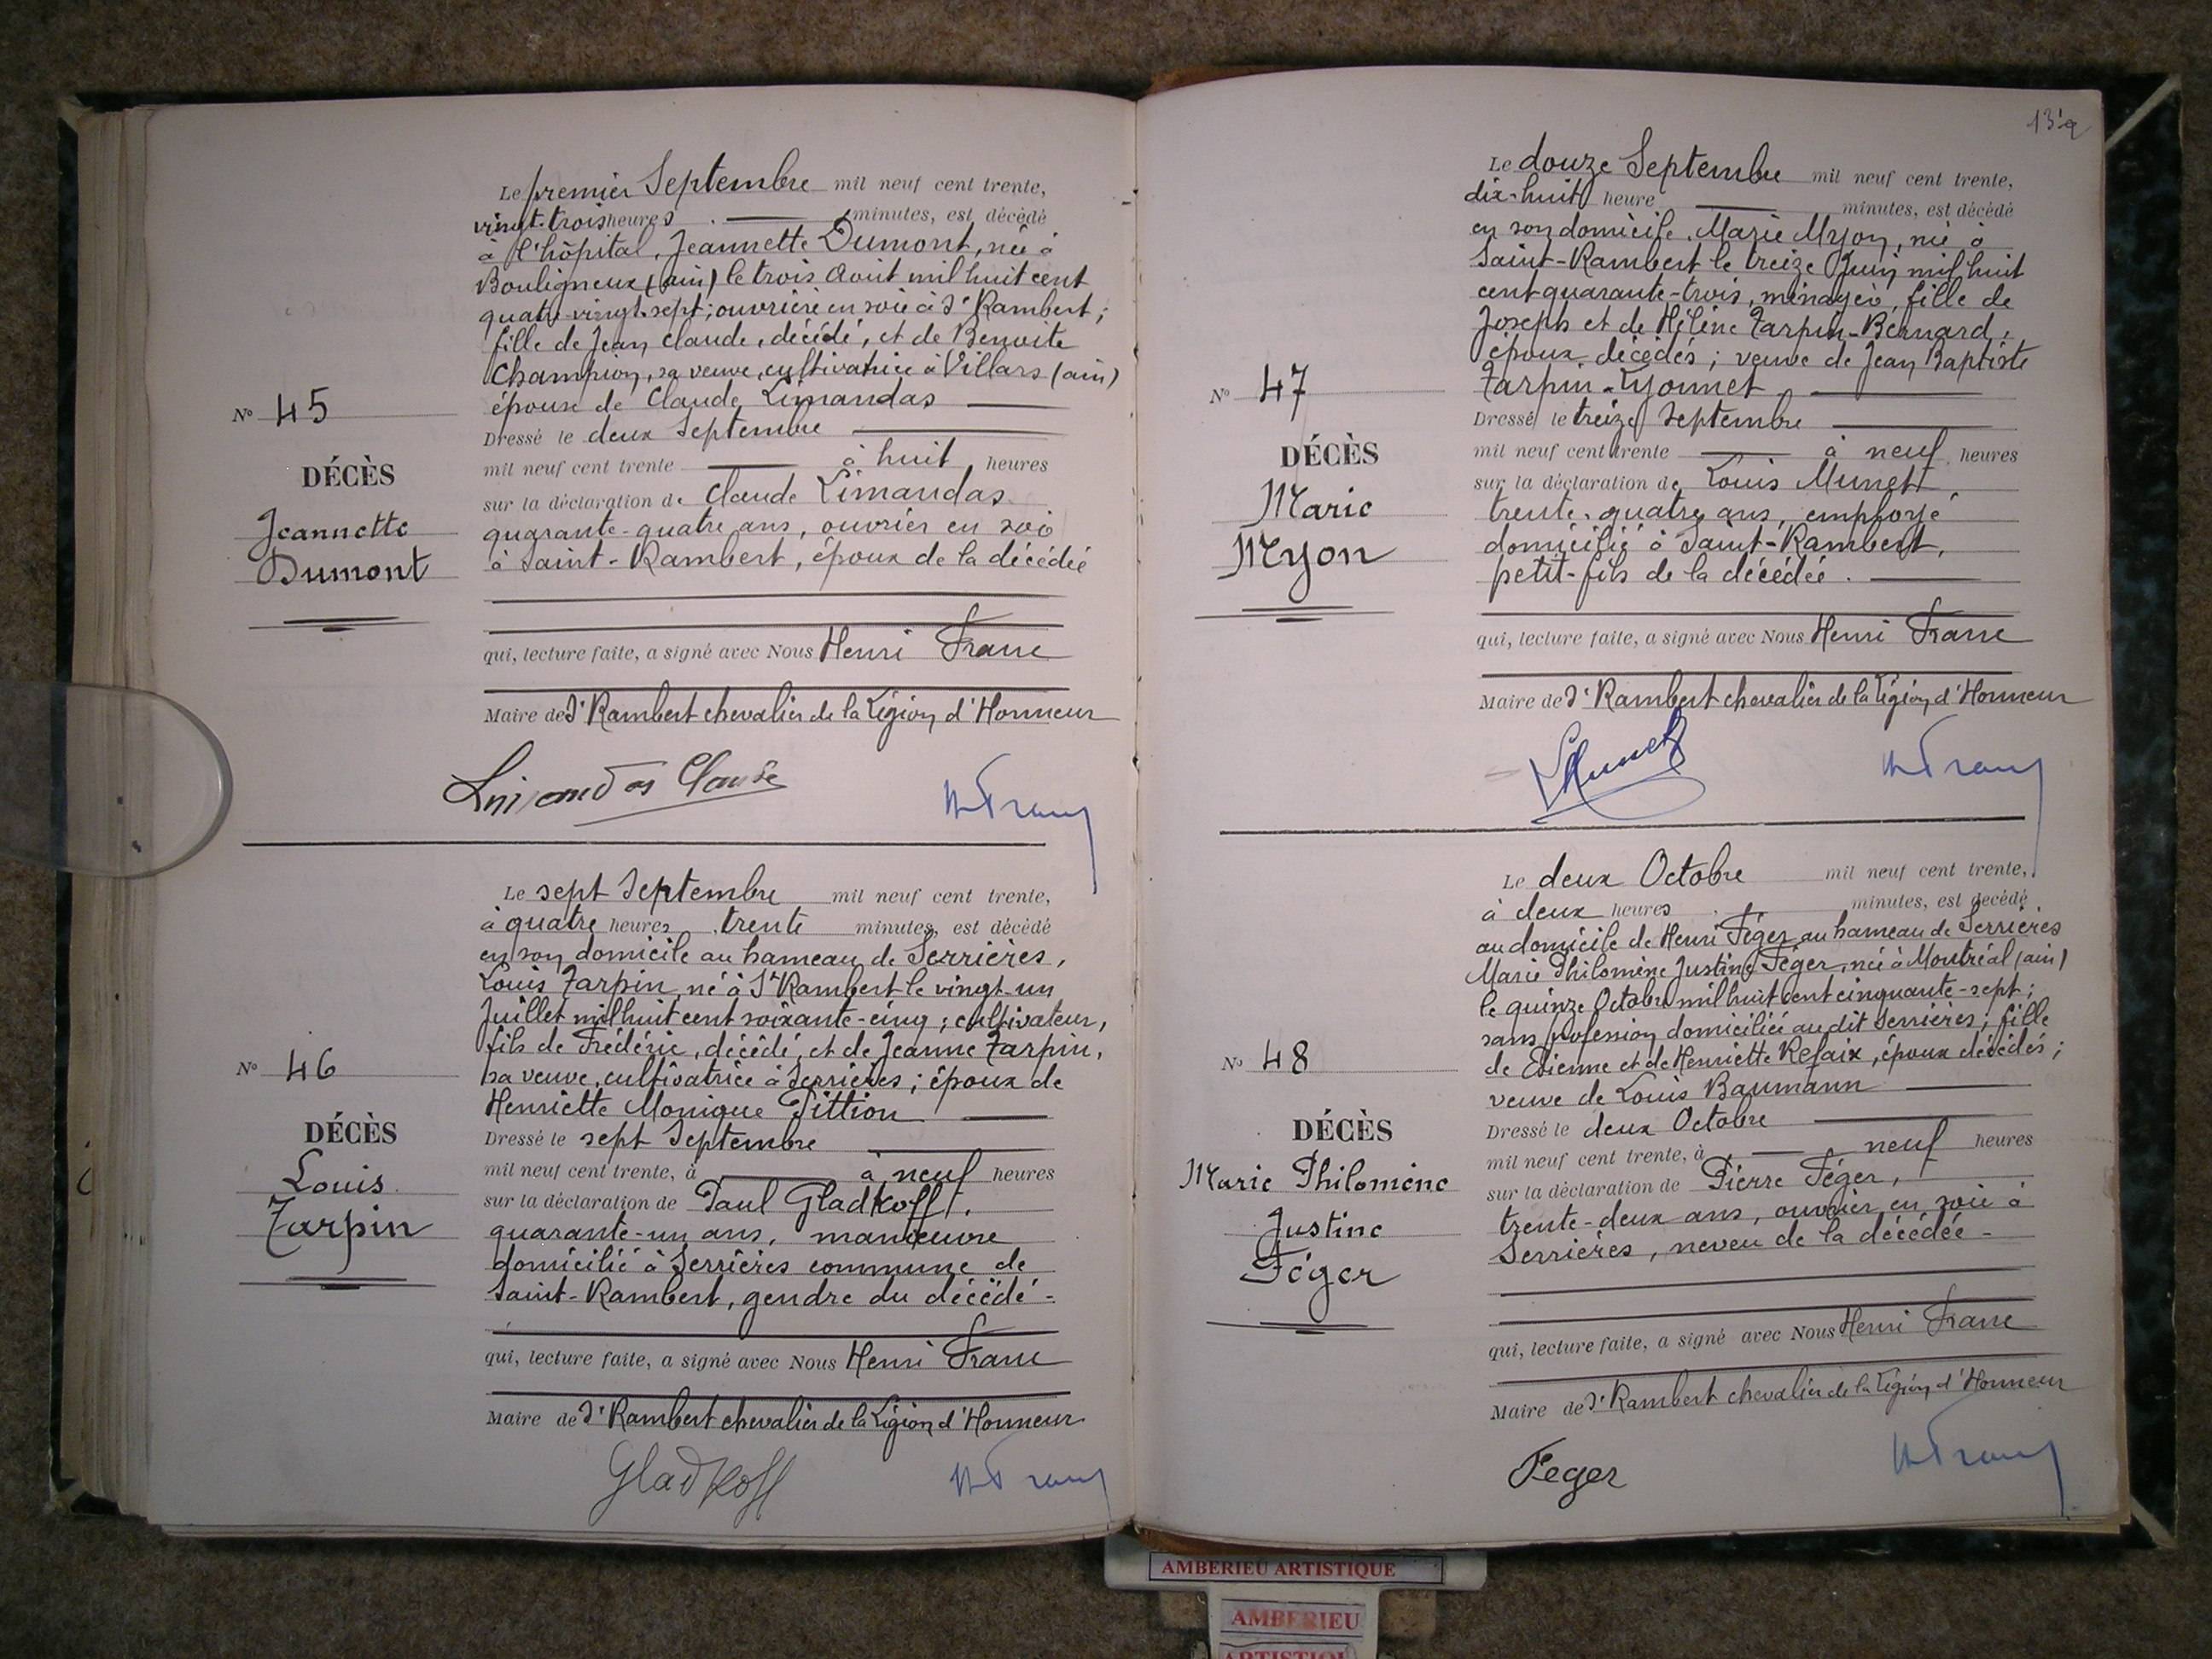 Le premier Septembre mil neuf cent trente,
vingt-trois heures . — minutes, est décédé
à l'hôpital, Jeannette Dumont, née à
Bouligneux (ain) le trois Août mil huit cent
quatre-vingt-sept; ouvrière en soie à St Rambert;
fille de Jean Claude, décédé, et de Benoite
Champion, sa veuve, cultivatrice à Villars (ain)
épouse de Claude Limandas —
N° 45
Dressé le deux Septembre —
mil neuf cent trente — à huit heures
DÉCÈS
sur la déclaration de Claude Limandas
Jeannette
quarante-quatre ans, ouvrier en soie
Dumont
à Saint-Rambert, époux de la décédée
qui, lecture faite, a signé avec Nous Henri Franc
Maire de St Rambert chevalier de la Légion d'Honneur
Limandas Claude
H Franc
Le sept Septembre mil neuf cent trente,
à quatre heures, trente minutes, est décédé
en son domicile au hameau de Serrières,
Louis Tarpin, né à St Rambert le vingt-un
Juillet mil huit cent soixante-cinq; cultivateur,
fils de Frédéric, décédé, et de Jeanne Tarpin,
sa veuve, cultivatrice à Serrières; époux de
Henriette Monique Pittion —
N° 46
Dressé le sept Septembre —
DÉCÈS
mil neuf cent trente, à — à neuf heures
Louis
sur la déclaration de Paul Gladkoff,
Tarpin
quarante-un ans, manœuvre
domicilié à Serrières commune de
Saint-Rambert, gendre du décédé -
qui, lecture faite, a signé avec Nous Henri Franc
Maire de St Rambert chevalier de la Légion d'Honneur
Gladkoff
H Franc
Le douze Septembre mil neuf cent trente,
dix-huit heure — minutes, est décédé
en son domicile, Marie Myon, née à
Saint-Rambert le treize Juin mil huit
cent quarante-trois, ménagère, fille de
Joseph et de Hélène Tarpin-Bernard,
époux décédés; veuve de Jean Baptiste
Tarpin-Lyonnet —
N° 47
Dressé le treize Septembre —
DÉCÈS
mil neuf cent trente — à neuf heures
Marie
sur la déclaration de Louis Munet,
trente-quatre ans, employé
Myon
domicilié à Saint-Rambert,
petit-fils de la décédée. —
qui, lecture faite, a signé avec Nous Henri Franc
Maire de St Rambert chevalier de la Légion d'Honneur
LMunet
H Franc
Le deux Octobre mil neuf cent trente,
à deux heures . — minutes, est décédé
au domicile de Henri Féger au hameau de Serrières
Marie Philomène Justine Féger, née à Montréal (ain)
le quinze Octobre mil huit cent cinquante-sept;
sans profession domiciliée au dit Serrières; fille
de Etienne et de Henriette Refaix, époux décédés;
veuve de Louis Baumann —
N° 48
Dressé le deux Octobre —
DÉCÈS
mil neuf cent trente, à — neuf heures
Marie Philomène
sur la déclaration de Pierre Féger,
Justine
trente-deux ans, ouvrier en soie à
Féger
Serrières, neveu de la décédée -
qui, lecture faite, a signé avec Nous Henri Franc
Maire de St Rambert chevalier de la Légion d'Honneur
Feger
H Franc
AMBERIEU ARTISTIQUE
AMBERIEU
ARTISTIQU